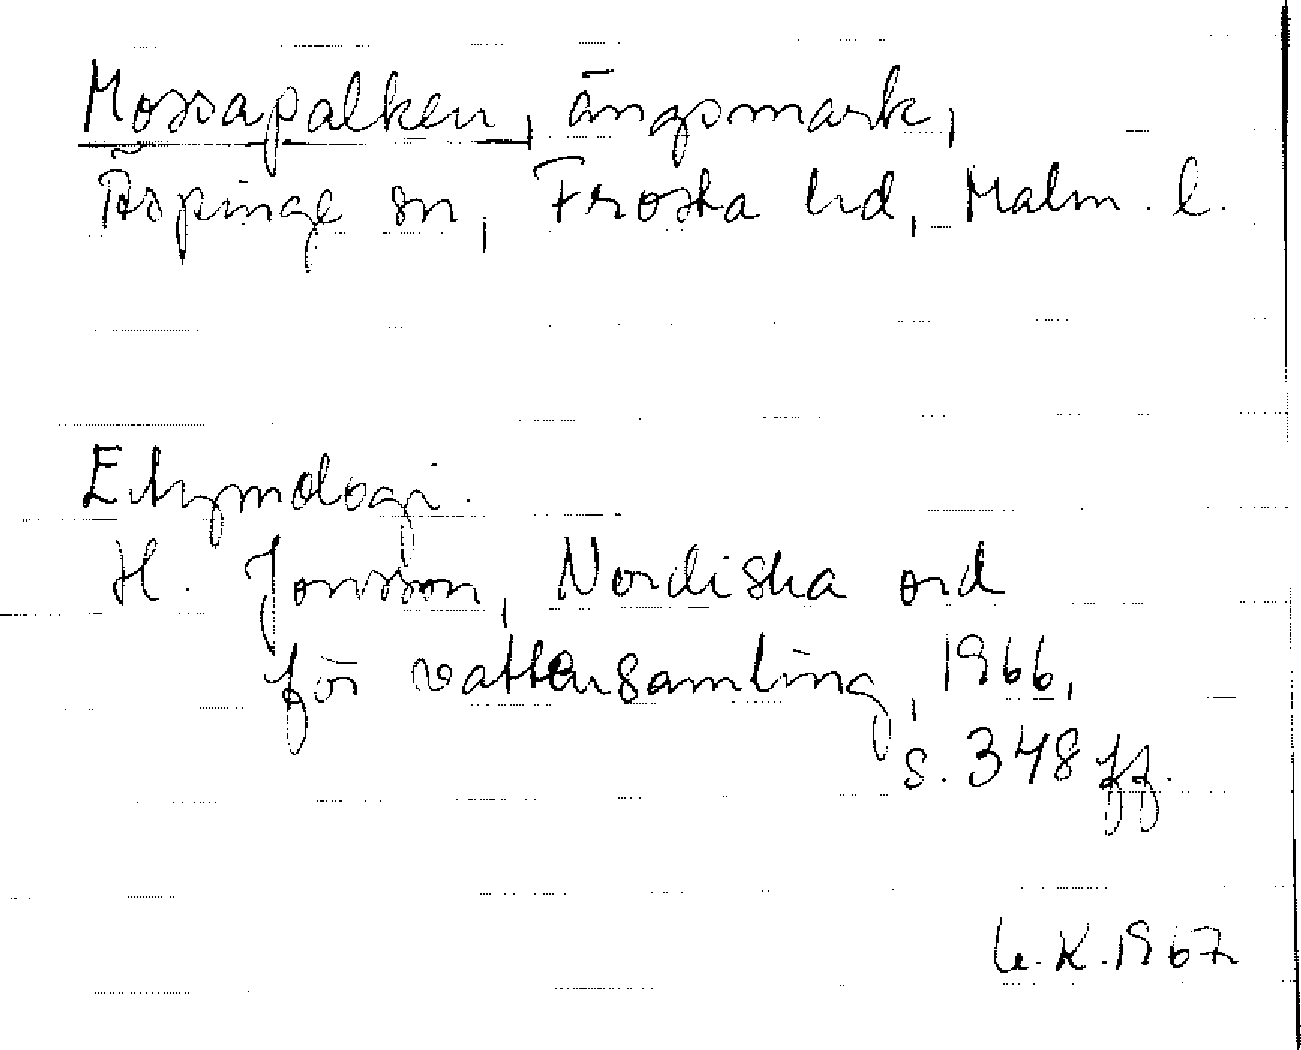 Mossapalken, ängsmark,
Äspinge sn, Frosta hd, Malm. l.
Etymologi.
H. Jonsson, Nordiska ord
för vattensamling, 1966,
s. 348 ff.
K. 1967